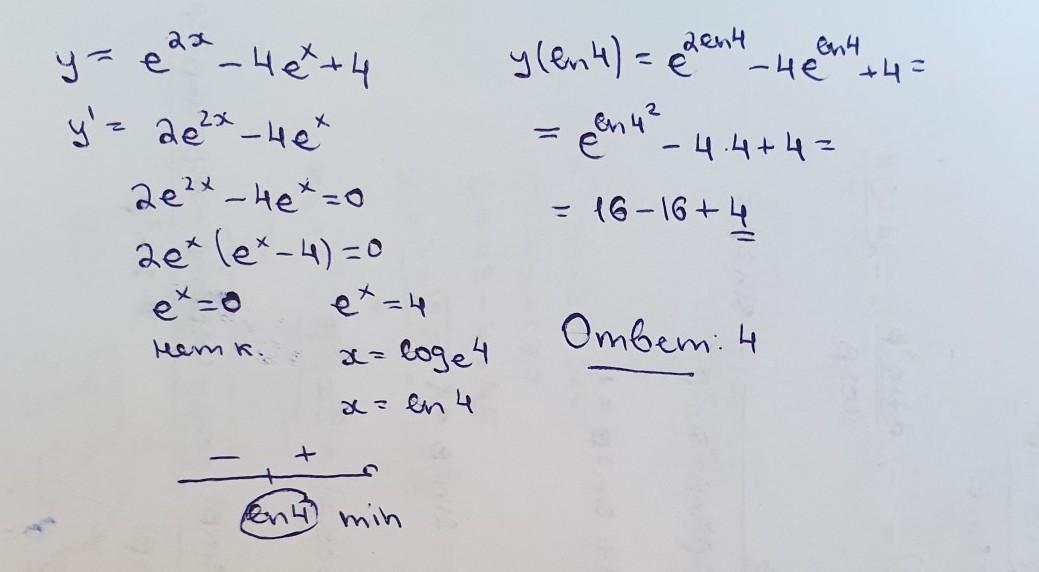 y = e^{2x} - 4e^x + 4
y' = 2e^{2x} - 4e^x
2e^{2x} - 4e^x = 0
2e^x (e^x - 4) = 0
e^x = 0 e^x = 4
нет к. x = log_e 4
x = ln 4
- +
ln 4 min
y(ln 4) = e^{2ln4} - 4e^{ln4} + 4 =
= e^{ln 4^2} - 4 · 4 + 4 =
= 16 - 16 + 4
Ответ: 4